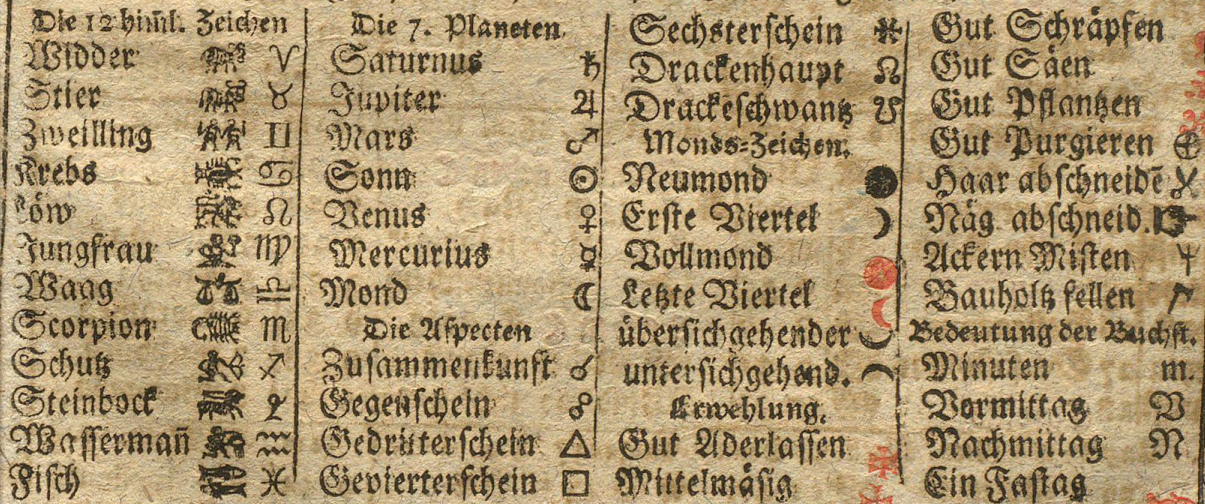 Die 12 him̄l. Zeichen
Widder ♈
Stier ♉
Zweilling ♊
Krebs ♋
Löw ♌
Jungfrau ♍
Waag ♎
Scorpion ♏
Schutz ♐
Steinbock ♑
Wassermañ ♒
Fisch ♓
Die 7. Planeten.
Saturnus ♄
Jupiter ♃
Mars ♂
Sonn ☉
Venus ♀
Mercurius ☿
Mond ☾
Die Aspecten
Zusammenkunft ☌
Gegenschein ☍
Gedritterschein △
Gevierterschein □
Sechsterschein ⚹
Drackenhaupt ☊
Drackeschwantz ☋
Monds-Zeichen.
Neumond ●
Erste Viertel ☽
Vollmond
Letzte Viertel ☾
übersichgehender
untersichgehend.
Erwehlung.
Gut Aderlassen
Mittelmäsig
Gut Schräpfen
Gut Säen
Gut Pflantzen
Gut Purgieren
Haar abschneidē
Näg abschneid.
Ackern Misten
Bauholtz fellen
Bedeutung der Buchst.
Minuten m.
Vormittag V
Nachmittag N
Ein Fastag